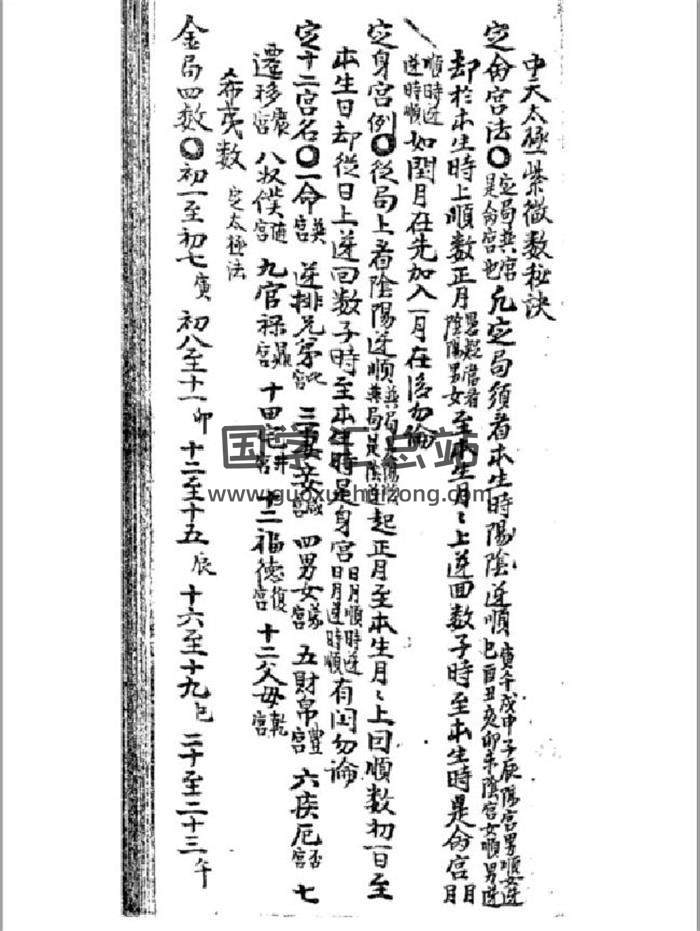 中天太極紫微數秘訣
定命宮法〇定局英宮是命宮也凡定局須看本生時陽陰逆順寅午戌申子辰陽宮男順女逆巳酉丑亥卯未陰宮女順男逆
却於本生時上順數正月陰陽男女至本生月〻上逆回数子時至本生時是命宮月月
順時逆逆時順如閏月在先加入一月在後勿論
定身宮例〇從局上看陰陽逆順起正月至本生月〻上回順數初一日至
本生日却從日上逆回数子時至本生時是身宮日月順時逆日月逆時順有闰勿論
定十二宮名〇一命宮 逆排兄弟宮 三妻妾咸宮 四男女宮 五財帛豐宮 六疾厄否宮 七
遷移宮 八奴僕隨宮 九官禄宮 十田宅井宮 十二福德復宮 十二父母乾宮
希夷数 定太極法
金局四数〇初一至初七寅 初八至十一卯 十二至十五辰 十六至十九巳 二十至二十三午
国学汇总站
www.guoxuehuizong.com